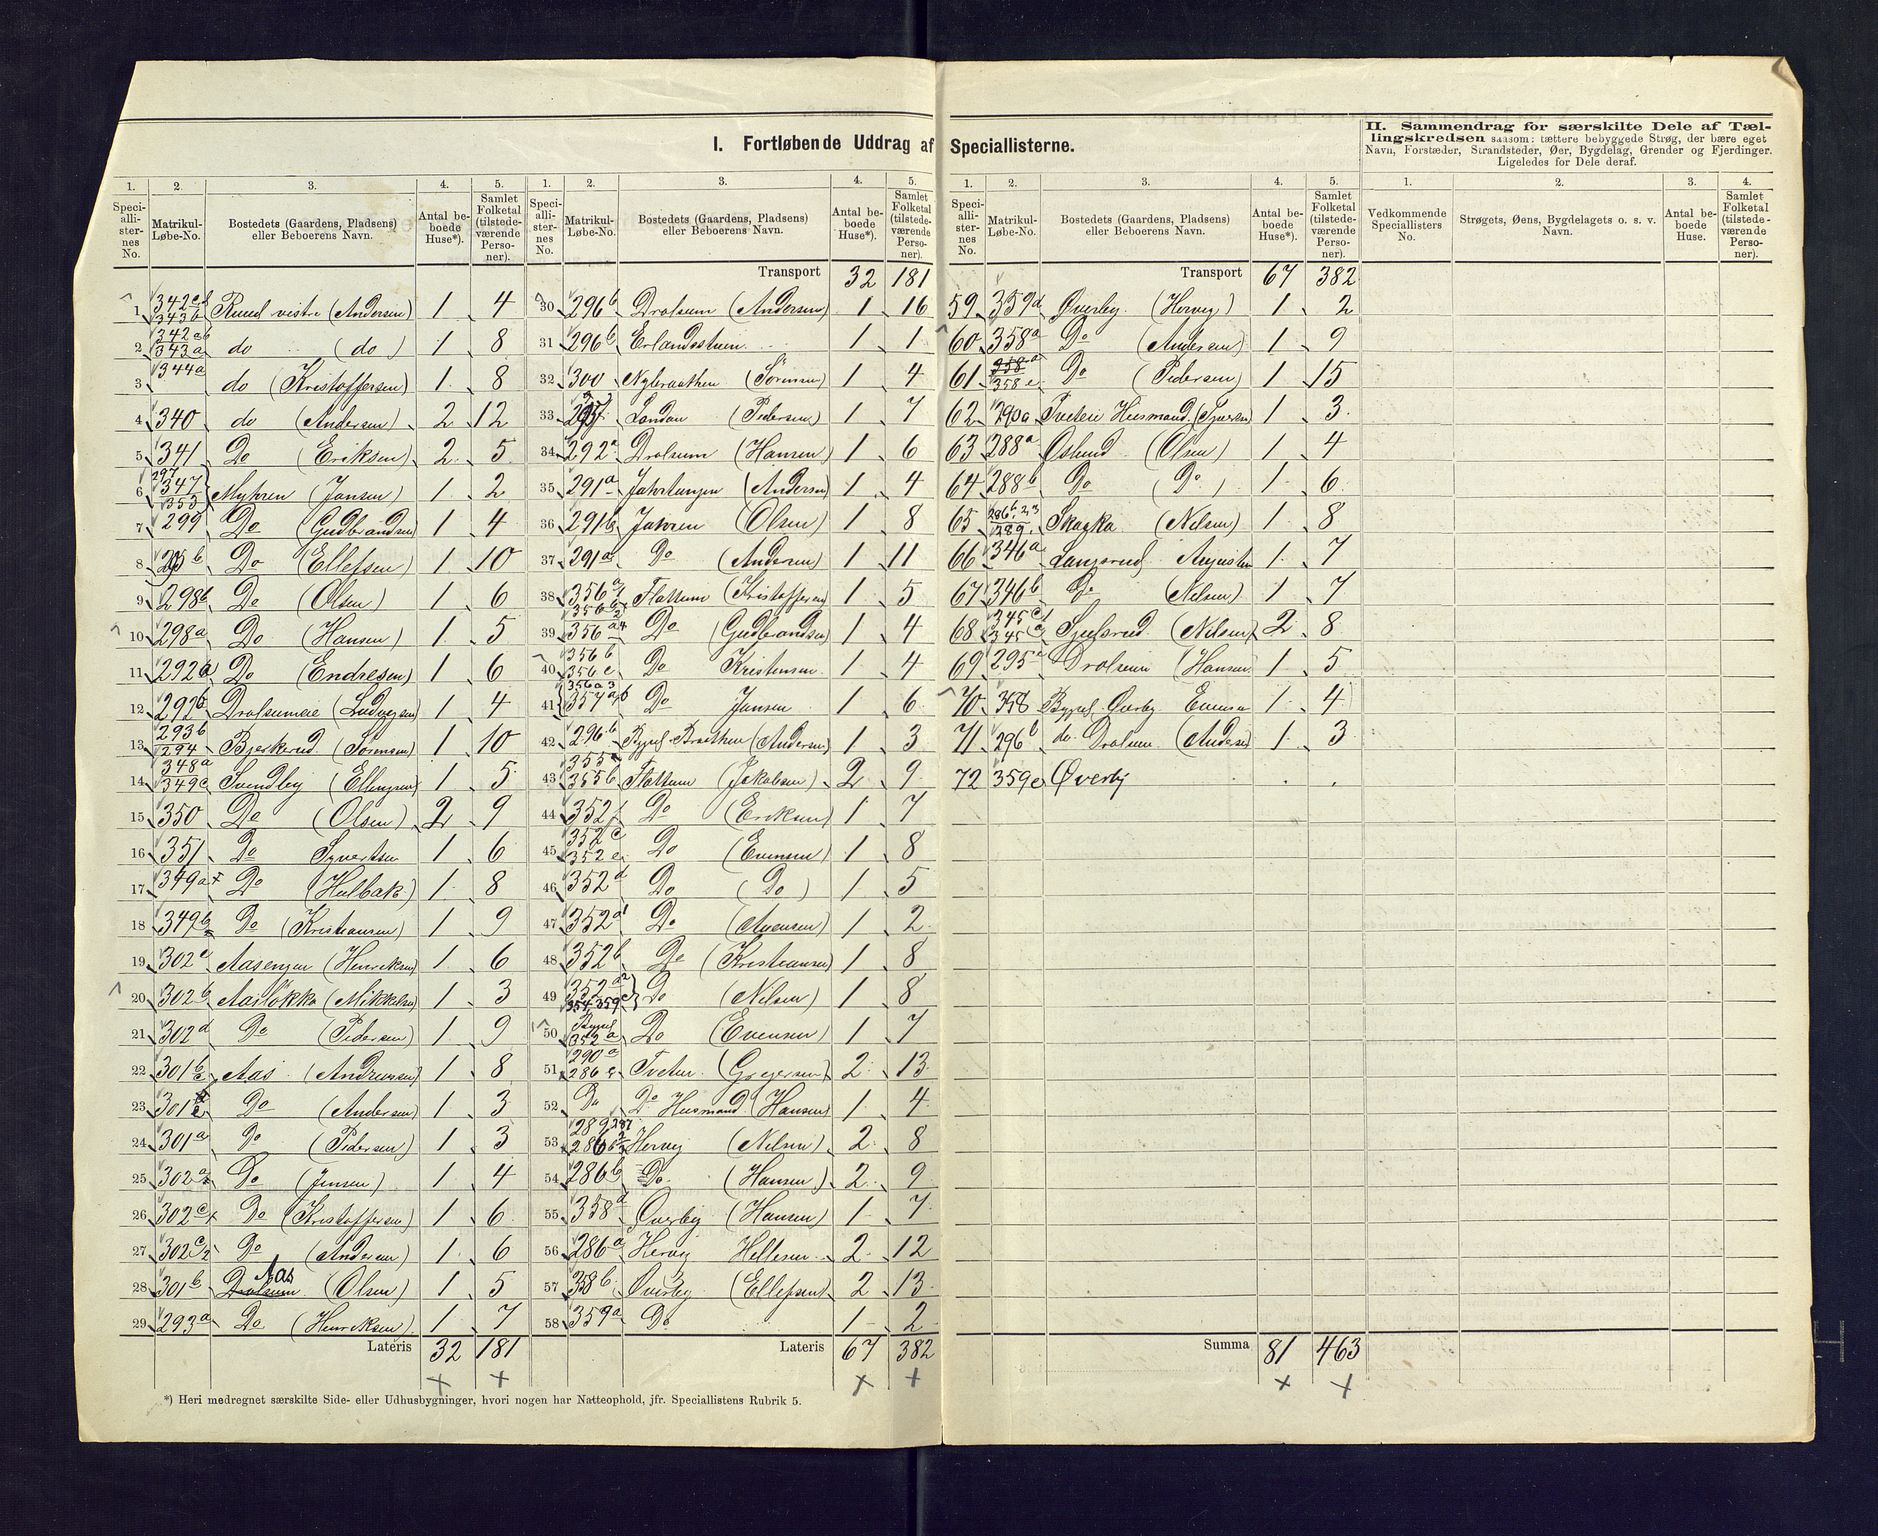 I. Fortløbende Uddrag af Speciallisterne.
II. Sammendrag for særskilte Dele af Tæl-
lingskredsen saasom: tættere bebyggede Strøg, der bære eget
Navn, Forstæder, Strandsteder, Øer, Bygdelag, Grender og Fjerdinger.
Ligeledes for Dele deraf.
1. 2. 3. 4. 5. 1. 2. 3. 4. 5. 1. 2. 3. 4. 5. 1. 2. 3. 4.
Speci-alli-ster-nes No. Matrikul-Løbe-No. Bostedets (Gaardens, Pladsens) eller Beboerens Navn. Antal be-boede Huse*). Samlet Folketal (tilstede-værende Perso-ner).
Speci-alli-ster-nes No. Matrikul-Løbe-No. Bostedets (Gaardens, Pladsens) eller Beboerens Navn. Antal be-boede Huse*). Samlet Folketal (tilstede-værende Perso-ner).
Speci-alli-ster-nes No. Matrikul-Løbe-No. Bostedets (Gaardens, Pladsens) eller Beboerens Navn. Antal be-boede Huse*). Samlet Folketal (tilstede-værende Perso-ner).
Vedkommende Speciallisters No. Strøgets, Øens, Bygdelagets o. s. v. Navn. Antal be-boede Huse. Samlet Folketal (tilstede-værende Perso-ner).
1 Ruud vestre (Andersen) 1 4
2 342ab 343a do (do) 1 8
3 344a do (Kristoffersen) 1 8
4 340 do (Andersen) 2 12
5 341 Do (Eriksen) 2 5
6 297 347 353 Myhren (Jansen) 1 2
7 299 Do (Gudbrandsen) 1 4
8 Do (Ellefsen) 1 10
9 298b Do (Olsen) 1 6
10 298a Do (Hansen) 1 5
11 292a Do (Endresen) 1 6
12 292b (Ludvigsen) 1 4
13 293b 294 Bjerkerud (Sørensen) 1 10
14 348a 349c Svendby (Ellingsen) 1 5
15 350 Do (Olsen) 2 9
16 351 Do Syvertsen 1 6
17 349a Do (Hulbak) 1 8
18 349b Do (Kristiansen) 1 9
19 302e Aasengen (Henriksen) 1 6
20 302b Aasløkka (Mikkelsen) 1 3
21 302d Do (Pedersen) 1 9
22 301b Aas (Andreassen) 1 8
23 301 Do (Andersen) 1 3
24 301a Do (Pedersen) 1 3
25 302a Do (Jensen) 1 4
26 302c Do (Kristoffersen) 1 6
27 302c/2 Do (Andersen) 1 6
28 301b Drolsum Aas (Olsen) 1 5
29 293a Do (Henriksen) 1 7
Lateris 32 181
Transport 32 181
30 296b Drolsum (Andersen) 1 16
31 296b Erlandstuen 1 1
32 300 Nybraathen (Sörensen) 1 4
33 Landon (Pedersen) 1 7
34 292a Drolsum (Hansen) 1 6
35 291a (Andersen) 1 4
36 291b Jahren (Olsen) 1 8
37 291a Do (Andersen) 1 11
38 356a Flattum (Kristoffersen) 1 5
39 356a4 Do (Gudbrandsen) 1 4
40 356b 356c Do Kristensen 1 4
41 356a3 Do Jansen 1 6
42 296b Bygsl. Braathen (Andersen) 1 3
43 355b Flattum (Jakobsen) 2 9
44 352f Do (Eriksen) 1 7
45 352c 352e Do (Evensen) 1 8
46 352d Do (Do) 1 5
47 352a1 Do 1 2
48 352b Do (Kristiansen) 1 8
49 352a2 Do (Nilsen) 1 8
50 Bygsl 352a Do (Evensen) 1 7
51 290a Tveter (Gregersen) 2 13
52 Do Do Husmand (Hansen) 1 4
53 Hervig (Nilsen) 2 8
54 286b Do (Hansen) 2 9
55 358d Överby (Hansen) 1 7
56 286a Hervig Hellesen 2 12
57 358b Överby (Ellefsen) 2 13
58 359a Do 1 2
Lateris 67 382
Transport 67 382
59 359d Øverby (Hervig) 1 2
60 358a Do (Andersen) 1 9
61 358a 358e Do (Pedersen) 1 15
62 290a Husmand 1 3
63 288a Oslund (Olsen) 1 4
64 288b Do (Do) 1 6
65 Skagka (Nilsen) 1 8
66 346a Langsrud Augusten 1 7
67 346b Do (Nilsen) 1 7
68 (Nilsen) 2 8
69 295a Drolsum (Hansen) 1 5
70 358 Bygsl. Överby Evensen 1 4
71 296b do Drolsum (Andersen) 1 3
72 359e Øverby
Summa 81 463
*) Heri medregnet særskilte Side- eller Udhusbygninger, hvori nogen har Natteophold, jfr. Speciallistens Rubrik 5.